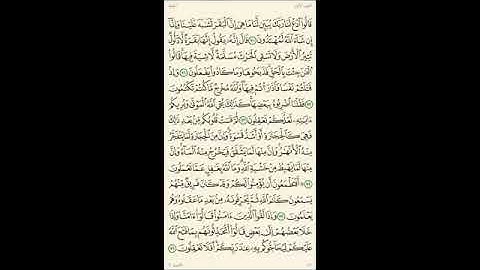 قَالُوا۟ ٱدْعُ لَنَا رَبَّكَ يُبَيِّن لَّنَا مَا هِىَ إِنَّ ٱلْبَقَرَ تَشَـٰبَهَ عَلَيْنَا وَإِنَّآ
إِن شَآءَ ٱللَّهُ لَمُهْتَدُونَ ﴿٧٠﴾ قَالَ إِنَّهُۥ يَقُولُ إِنَّهَا بَقَرَةٌ لَّا ذَلُولٌ
تُثِيرُ ٱلْأَرْضَ وَلَا تَسْقِى ٱلْحَرْثَ مُسَلَّمَةٌ لَّا شِيَةَ فِيهَا قَالُوا۟
ٱلْـَٔـٰنَ جِئْتَ بِٱلْحَقِّ فَذَبَحُوهَا وَمَا كَادُوا۟ يَفْعَلُونَ ﴿٧١﴾ وَإِذْ
قَتَلْتُمْ نَفْسًا فَٱدَّٰرَْٰٔتُمْ فِيهَا وَٱللَّهُ مُخْرِجٌ مَّا كُنتُمْ تَكْتُمُونَ
﴿٧٢﴾ فَقُلْنَا ٱضْرِبُوهُ بِبَعْضِهَا كَذَٰلِكَ يُحْىِ ٱللَّهُ ٱلْمَوْتَىٰ وَيُرِيكُمْ
ءَايَـٰتِهِۦ لَعَلَّكُمْ تَعْقِلُونَ ﴿٧٣﴾ ثُمَّ قَسَتْ قُلُوبُكُم مِّنۢ بَعْدِ ذَٰلِكَ
فَهِىَ كَٱلْحِجَارَةِ أَوْ أَشَدُّ قَسْوَةً وَإِنَّ مِنَ ٱلْحِجَارَةِ لَمَا يَتَفَجَّرُ
مِنْهُ ٱلْأَنْهَـٰرُ وَإِنَّ مِنْهَا لَمَا يَشَّقَّقُ فَيَخْرُجُ مِنْهُ ٱلْمَآءُ وَإِنَّ
مِنْهَا لَمَا يَهْبِطُ مِنْ خَشْيَةِ ٱللَّهِ وَمَا ٱللَّهُ بِغَـٰفِلٍ عَمَّا تَعْمَلُونَ
﴿٧٤﴾ أَفَتَطْمَعُونَ أَن يُؤْمِنُوا۟ لَكُمْ وَقَدْ كَانَ فَرِيقٌ مِّنْهُمْ
يَسْمَعُونَ كَلَـٰمَ ٱللَّهِ ثُمَّ يُحَرِّفُونَهُۥ مِنۢ بَعْدِ مَا عَقَلُوهُ وَهُمْ
يَعْلَمُونَ ﴿٧٥﴾ وَإِذَا لَقُوا۟ ٱلَّذِينَ ءَامَنُوا۟ قَالُوٓا۟ ءَامَنَّا وَإِذَا
خَلَا بَعْضُهُمْ إِلَىٰ بَعْضٍ قَالُوٓا۟ أَتُحَدِّثُونَهُم بِمَا فَتَحَ ٱللَّهُ
عَلَيْكُمْ لِيُحَآجُّوكُم بِهِۦ عِندَ رَبِّكُمْ أَفَلَا تَعْقِلُونَ ﴿٧٦﴾